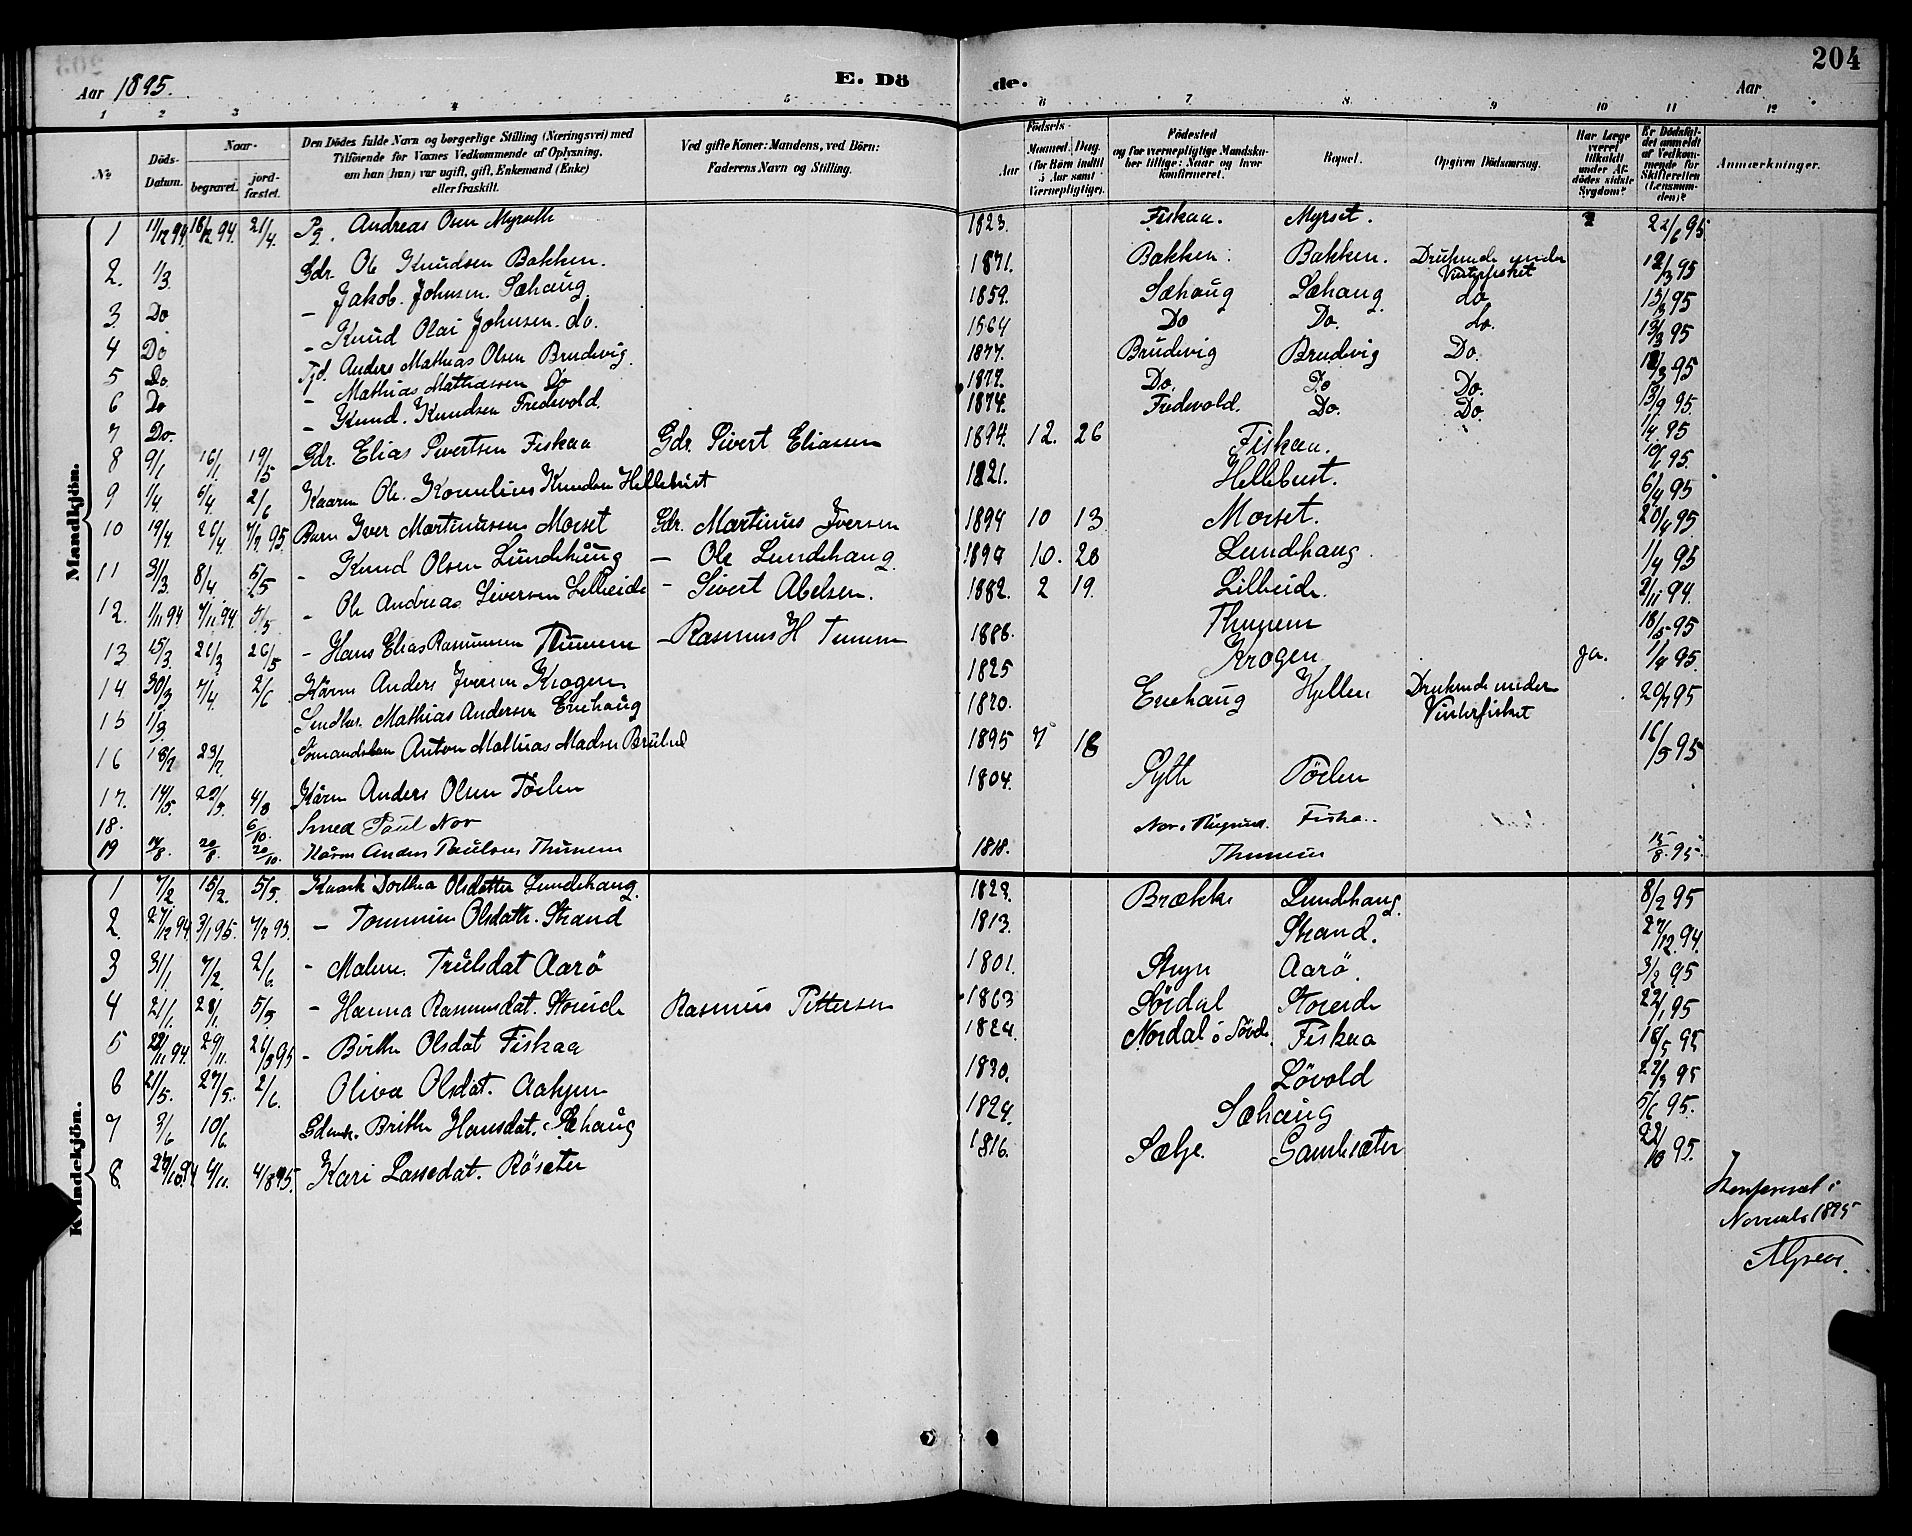 204
Aar 1895.
E. Dö
de.
Aar
1 2 3 4 5 6 7 8 9 10 11 12
No
Döds-Datum.
Naar-
begravet.
jord-fæstet.
Den Dödes fulde Navn og borgerlige Stilling (Næringsvei) med
Tilföiende for Voxnes Vedkommende af Oplysning,
om han (hun) var ugift, gift, Enkemand (Enke)
eller fraskilt.
Ved gifte Koner: Mandens, ved Börn:
Faderens Navn og Stilling.
Födsels-
Aar
Maaned. Dag.
(for Börn indtil 5 Aar samt Vernepligtige).
Födested
og for vernepligtige Mandskaber tillige: Naar og hvor konfirmeret.
Bopæl.
Opgiven Dödsaarsag.
Har Læge været tilkaldt under Afdödes sidste Sygdom?
Er Dödsfaldet anmeldt af Vedkommende for Skifteretten (Lensmanden)?
Anmærkninger.
Mandkjön.
1 11/12 94 18/12 94. 21/4. Andreas Osen 1823. Fiskaa. Myrset. 22/6 95
2. 1/3 Gdr. Ole Knudsen Bakken. 1871. Bakken. Bakken. Drukende under Vinterfisket 12/3 95
3. Do - Jakob. Johnsen. Sæhaug 1859. Sæhaug Sæhaug do 13/3 95
4 Do - Knud Olai Johnsen. do. Do Do. do. 13/3 95
5 Do. Anders Mathias Olsen Brudevig. 1877. Brudevig Brudevig Do.
6 Do - Mathias Mathiassen Do Do. Do Do.
7 Do. - Knud. Knudsen Fredevold. 1874. Fredevold. Do. Do.
8 9/1 16/1 19/5 Gdr. Elias Sivertsen Fiskaa Gdr. Sivert Eliassen 1894. 12. 26 Fiskaa.
9 1/4. 6/4. 2/6 Kaarm Ole. Kornelius Knudsen Hellebust 1821. Hellebust. 6/4 95
10 19/4. 26/4. Barn Iver Martinussen Morset Gdr. Martinus Iversen 1894 10 13 Morset. 20/4 95.
11 31/3 8/4. 5/5 - Knud Olsen Lundehaug — Ole Lundehaug. 10. 20 Lundehaug. 1/4 95
12. 1/11 94 7/11 94. 5/5. - Ole Andreas Siversen Lilleeide - Sivert Abelsen. 1882. 2 19. Lilleeide. 2/11 94.
13 15/3. 21/3 26/5 - Hans Elias Rasmussen Thunem - Rasmus H Tunem 1886. Thunem 18/5 95
14 30/3 7/4. 2/6 Kårm Anders Iversen Krogen 1825 Krogen ja. 1/4 95.
15 1/3. Mathias Andersen Enehaug 1820. Enehaug Hjellen Drukende under Vinterfisket 20/3 95
16 Anton Mathias Madsen 1895 7 18 16/5 95
17. 14/5. 4/8 Kårm Anders Olsen Tørlen 1804. Sylte Tørlen
18. 6/10. Smed Paul Nor Fiska.
19 20/8. 20/10. Kårm Anders Paulsen Thunem 1818. Thunem 15/8. 95.
Kvindekjön.
1 7/2 15/2. 5/5. Dorthea Olsdatter Lundehaug. Brække Lundehaug. 8/2 95
2. 27/12 94 3/1 95. - Olsdatter. Strand 1813. Strand. 27/12. 94.
3 31/1. 7/2. 2/6. - Malene. Trulsdat Aarö 1801. Stryn Aarö. 3/2 95
4 21/1. 28/1. 5/5. - Hanna Rasmusdat. Storeide Rasmus Pettersen 1863 Sördal Storeide 22/1 95
5 22/11 94. 29/11. - Birthe Olsdat Fiskaa 1824. Nordal i Sövde Fiskaa 18/5 95
6 21/5. 27/5. 2/6. Oliva Olsdat. 1830. Lövold
7 3/6 10/6. Gdenk. Brithe Hansdat. Sæhaug Sæhaug 5/6 95.
8. 27/10. 94 4/11. 4/8 95. Kari Lassedat. Röseter 1816. Sælje. Gamlesæter 22/10 95.
Konfereret i
Novembr 1895